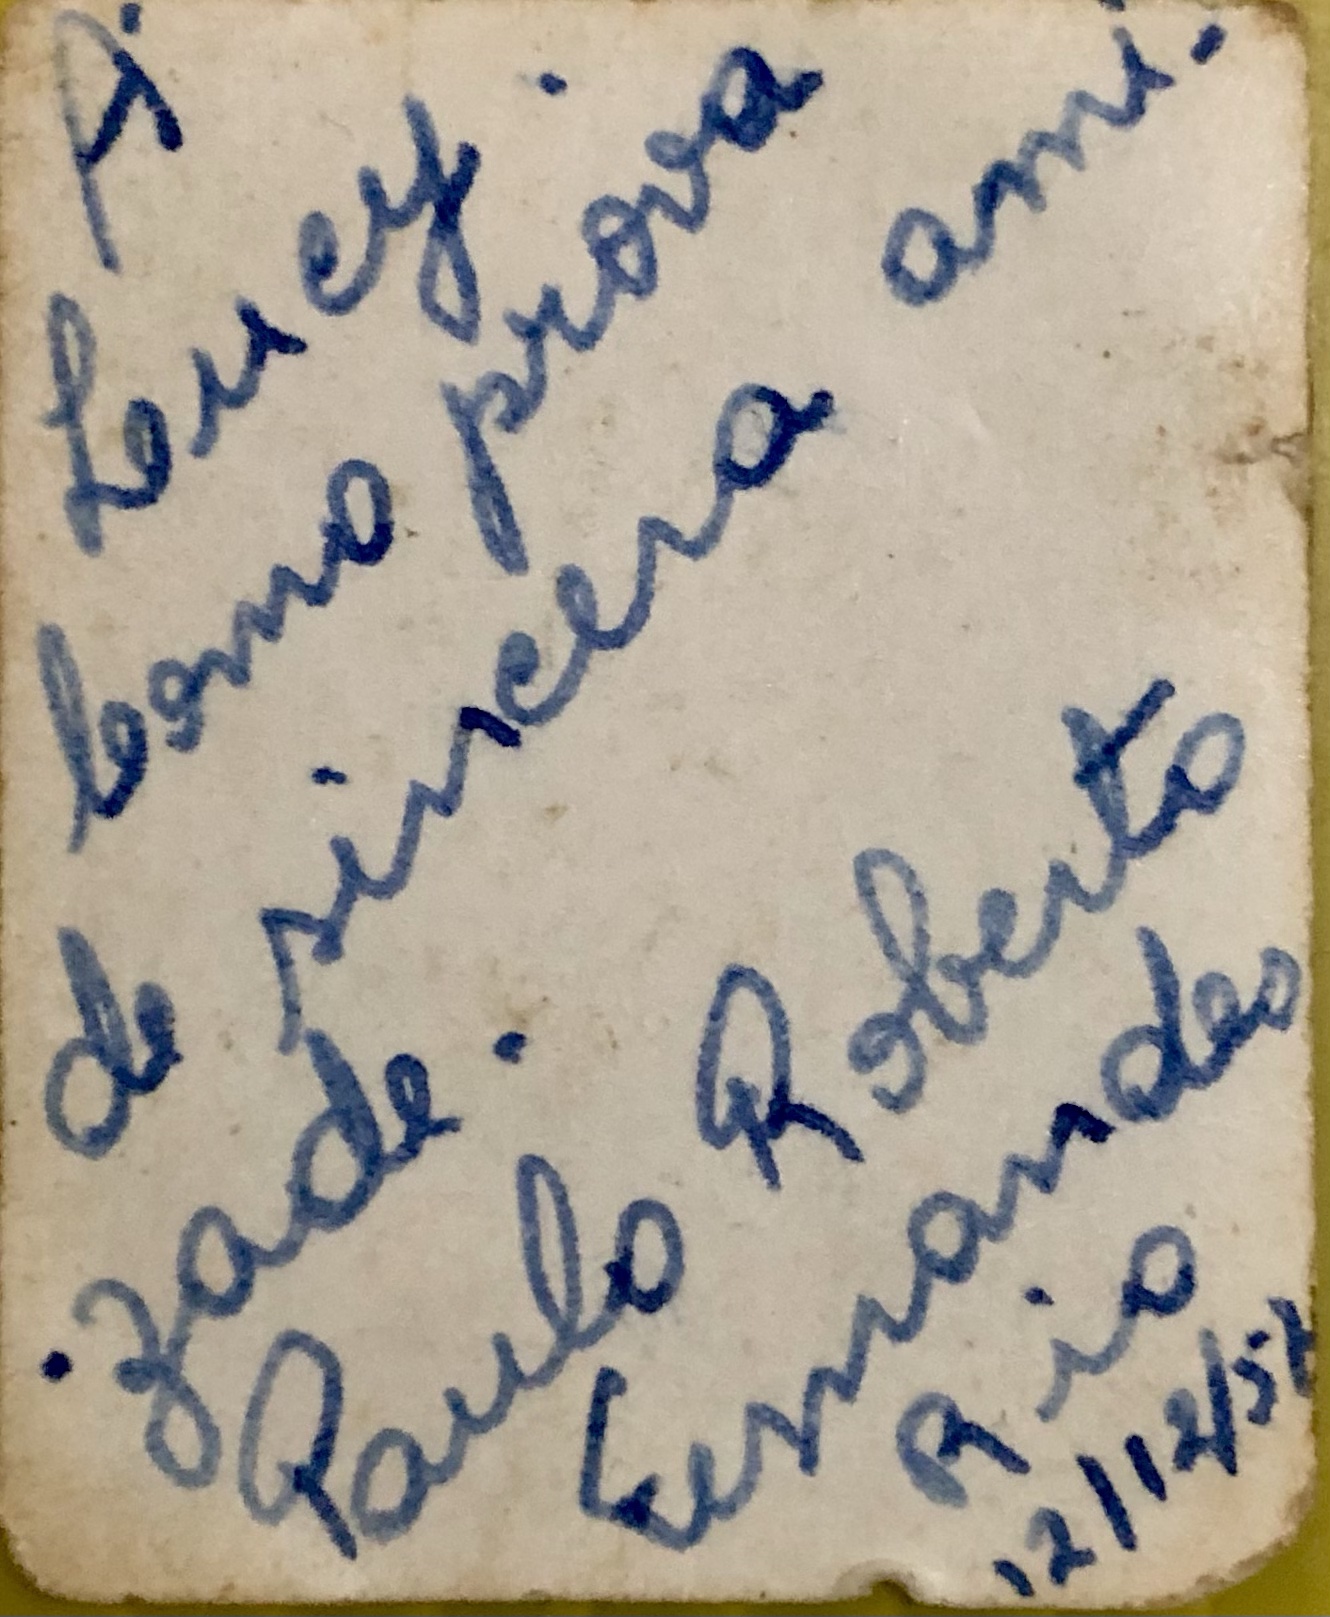 À
Leucy.
Como prova
de sincera ami.
.zade.
Paulo Roberto
Fernandes
Rio
12/12/51